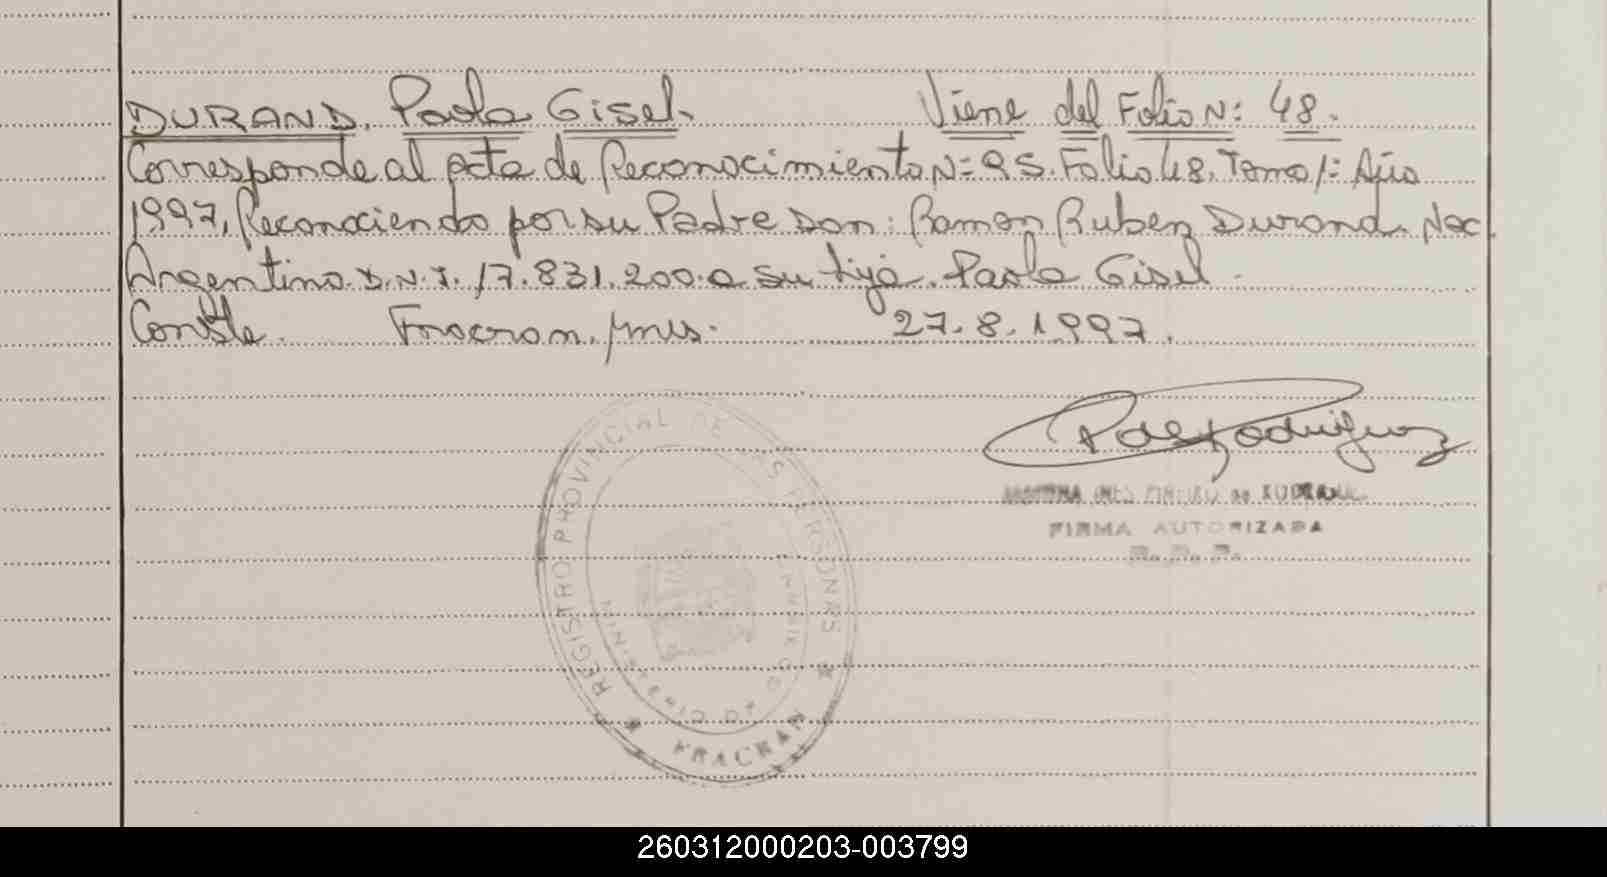 DURAND. Paola Gisel- Viene del Folio N: 48.
Corresponde al Acta de Reconocimiento N= 95. Folio 48. Tomo 1: Año
1997, Reconociendo por su Padre Don: Ramon Ruben Durand. Nac.
Argentino. D.N.I. 17.831.200. a su hija. Paola Gisel -
Conste. Fracran, Mns. 27.8.1997.
FIRMA AUTORIZADA
REGISTRO PROVINCIAL DE LAS PERSONAS
MINISTERIO DE GOBIERNO
FRACRAN
260312000203-003799